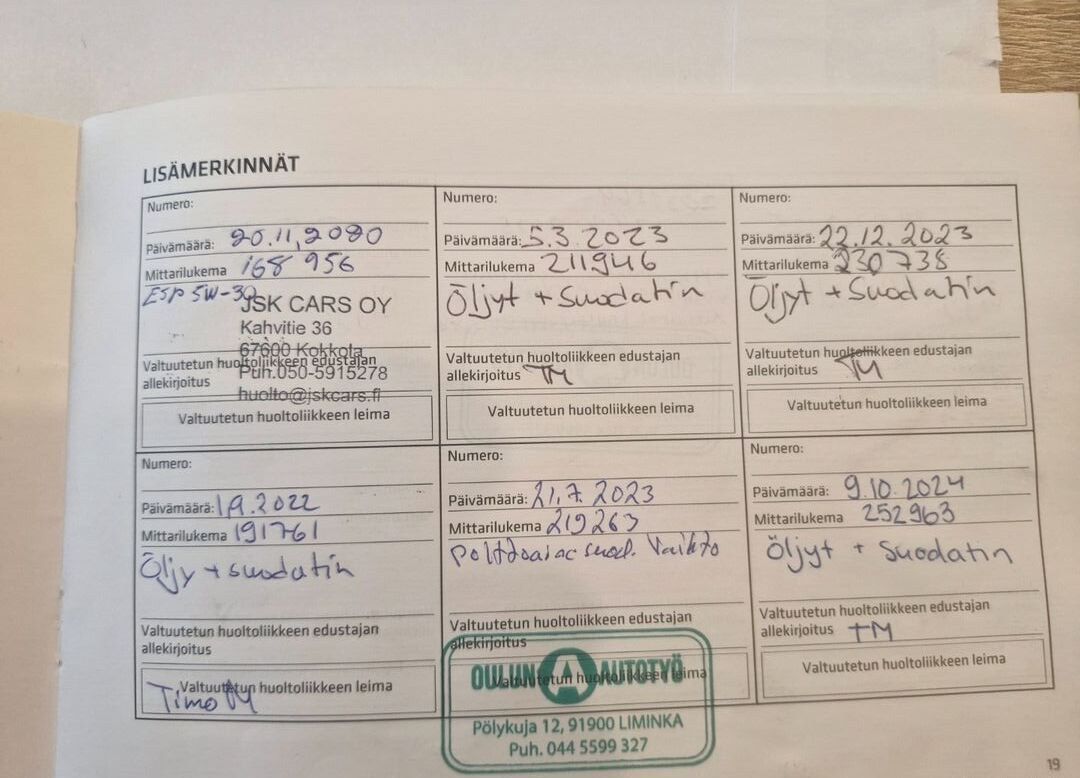 LISÄMERKINNÄT
Numero:
Päivämäärä: 20.11.2020
Mittarilukema 168 956
ESP 5W-30
JSK CARS OY
Kahvitie 36
67600 Kokkola
Valtuutetun huoltoliikkeen edustajan
allekirjoitus
Puh.050-5915278
huolto@jskcars.fi
Valtuutetun huoltoliikkeen leima
Numero:
Päivämäärä: 5.3.2023
Mittarilukema 211946
Öljyt + Suodatin
Valtuutetun huoltoliikkeen edustajan
allekirjoitus TM
Valtuutetun huoltoliikkeen leima
Numero:
Päivämäärä: 22.12.2023
Mittarilukema 230738
Öljyt + Suodatin
Valtuutetun huoltoliikkeen edustajan
allekirjoitus TM
Valtuutetun huoltoliikkeen leima
Numero:
Päivämäärä: 1.9.2022
Mittarilukema 191761
Öljy + suodatin
Valtuutetun huoltoliikkeen edustajan
allekirjoitus
Valtuutetun huoltoliikkeen leima
Timo
Numero:
Päivämäärä: 21.7.2023
Mittarilukema 219263
suod. Vaihto
Valtuutetun huoltoliikkeen edustajan
allekirjoitus
Valtuutetun huoltoliikkeen leima
OULUN AUTOTYÖ
Pölykuja 12, 91900 LIMINKA
Puh. 044 5599 327
Numero:
Päivämäärä: 9.10.2024
Mittarilukema 252963
Öljyt + Suodatin
Valtuutetun huoltoliikkeen edustajan
allekirjoitus TM
Valtuutetun huoltoliikkeen leima
19